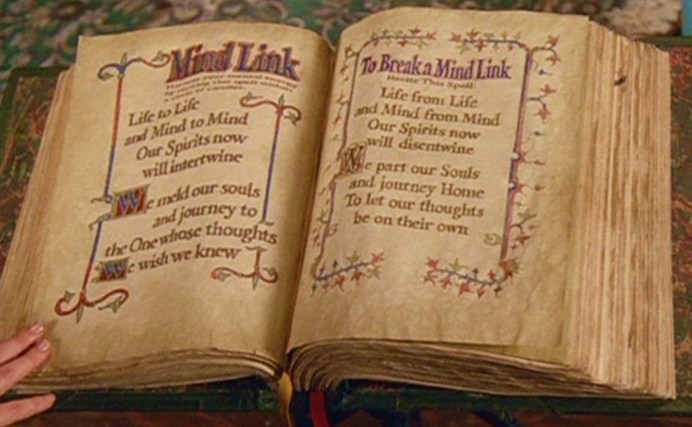 Mind Link
Harness your mental energy
by reciting this spell
Life to Life
and Mind to Mind
Our Spirits now
will intertwine
We meld our souls
and journey to
the One whose thoughts
We wish we knew
To Break a Mind Link
Recite This Spell:
Life from Life
and Mind from Mind
Our Spirits now
will disentwine
We part our Souls
and journey Home
To let our thoughts
be on their own